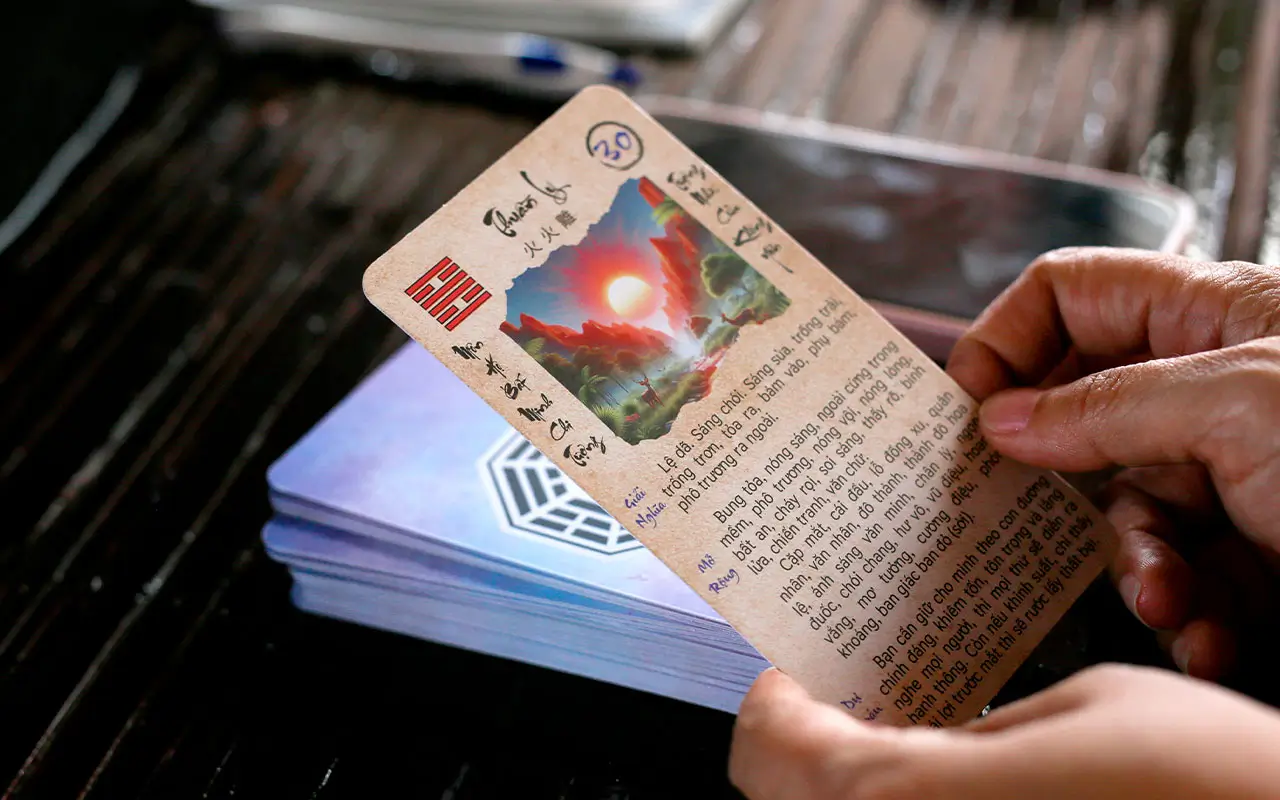 30
Thuần Ly
火火
Môn
Hộ
Bất
Ninh
Chi
Tượng
Giải
Nghĩa
Lệ dã. Sáng chói. Sáng sủa, trống trải,
trống trơn, tỏa ra, bám vào, phụ bám,
phô trương ra ngoài.
Mở
Rộng
Bung tỏa, nóng sáng, ngoài cứng trong
mềm, phô trương, nóng vội, nóng lòng,
bất an, cháy rọi, soi sáng, thấy rõ, binh
lửa, chiến tranh, văn chữ.
Cặp mắt, cái đầu, lỗ đồng xu, quân
nhân, văn nhân, đô thành, thành đô hoa
lệ, ánh sáng văn minh, chân lý, ngọn
đuốc, chói chang, hư vô, vũ điệu,
vắng, mơ tưởng, cường điệu,
khoáng, ban giác ban đỏ (sởi).
Dự
Bạn cần giữ cho mình theo con đường
chính đáng, khiêm tốn, tôn trọng và lắng
nghe mọi người, thì mọi thứ sẽ diễn ra
hanh thông. Còn nếu khinh suất, chỉ thấy
lợi trước mắt thì sẽ rước lấy thất bại.